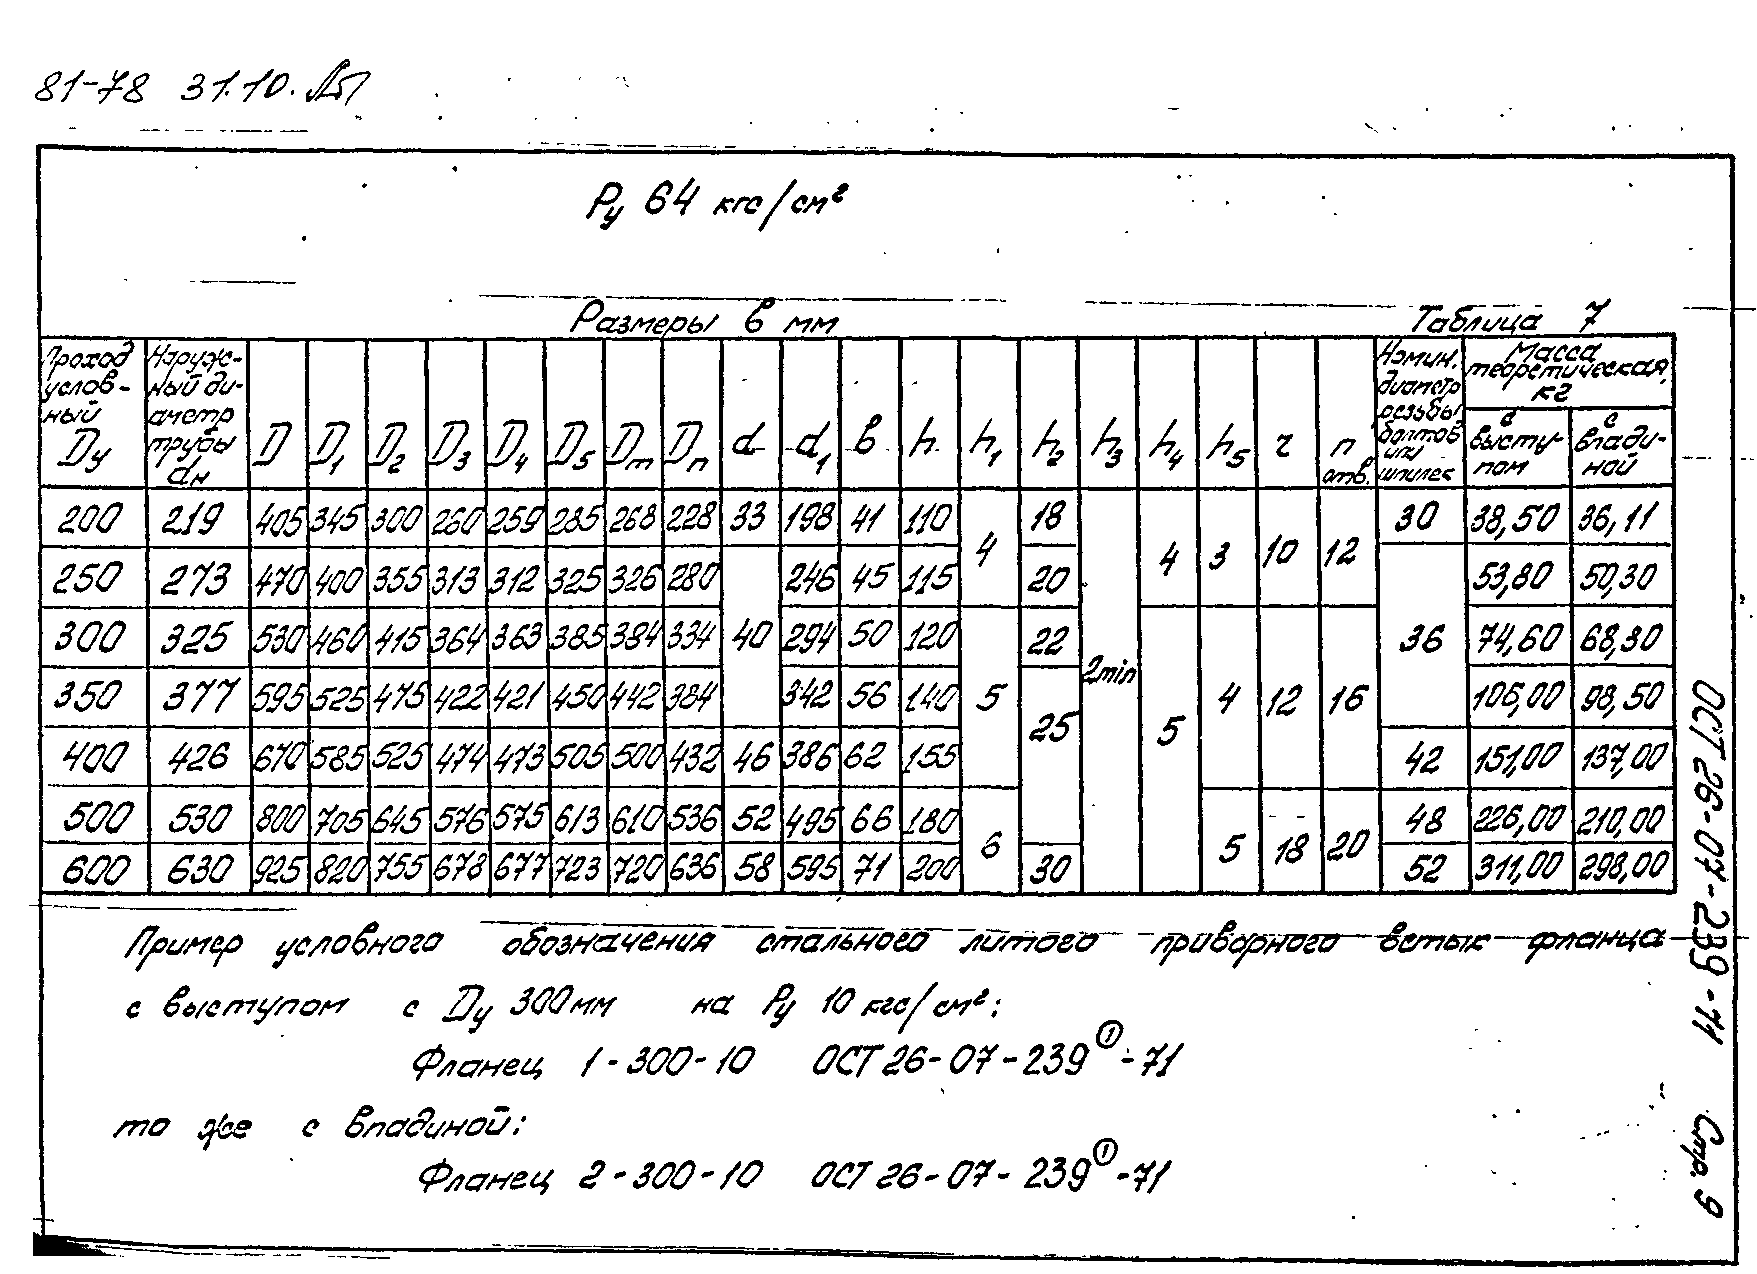 81-78 31.10.
Ру 64 кгс/см²
Размеры в мм Таблица 7
Проход условный Ду | Наружный диаметр трубы dн | D | D1 | D2 | D3 | D4 | D5 | Dm | Dп | d | d1 | в | h | h1 | h2 | h3 | h4 | h5 | r | n отв. | Номин. диаметр резьбы болтов или шпилек | Масса теоретическая, кг с выступом | с впадиной
200 219 405 345 300 260 259 285 268 228 33 198 41 110 4 18 2min 4 3 10 12 30 38,50 36,11
250 273 470 400 355 313 312 325 326 280 40 246 45 115 20 36 53,80 50,30
300 325 530 460 415 364 363 385 384 334 294 50 120 5 22 5 4 12 16 74,60 68,30
350 377 595 525 475 422 421 450 442 384 342 56 140 25 106,00 98,50
400 426 670 585 525 474 473 505 500 432 46 386 62 155 42 151,00 137,00
500 530 800 705 645 576 575 613 610 536 52 495 66 180 6 5 18 20 48 226,00 210,00
600 630 925 820 755 678 677 723 720 636 58 595 71 200 30 52 311,00 298,00
Пример условного обозначения стального литого приворного встык фланца
с выступом с Ду 300мм на Ру 10 кгс/см²:
Фланец 1-300-10 ОСТ 26-07-239①-71
то же с впадиной:
Фланец 2-300-10 ОСТ 26-07-239①-71
ОСТ 26-07-239-71 Стр. 9